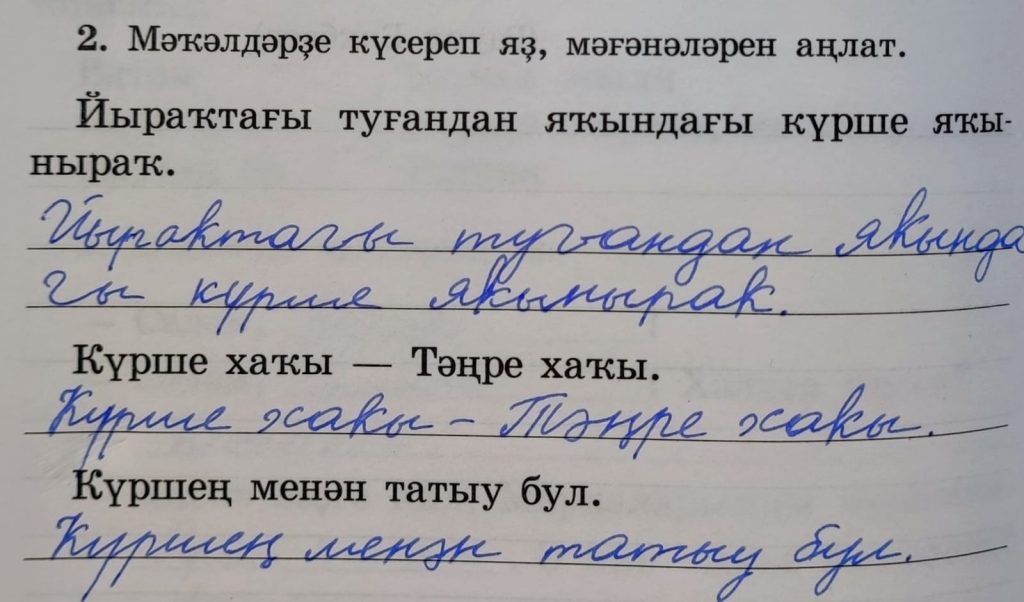 2. Мәҡәлдәрҙе күсереп яҙ, мәғәнәләрен аңлат.
Йыраҡтағы туғандан яҡындағы күрше яҡы-
ныраҡ.
Йырактагы тугандан якында
гы күрше якынырак.
Күрше хаҡы — Тәңре хаҡы.
Күрше хакы – Тәңре хакы.
Күршең менән татыу бул.
Күршең менән татыу бул.